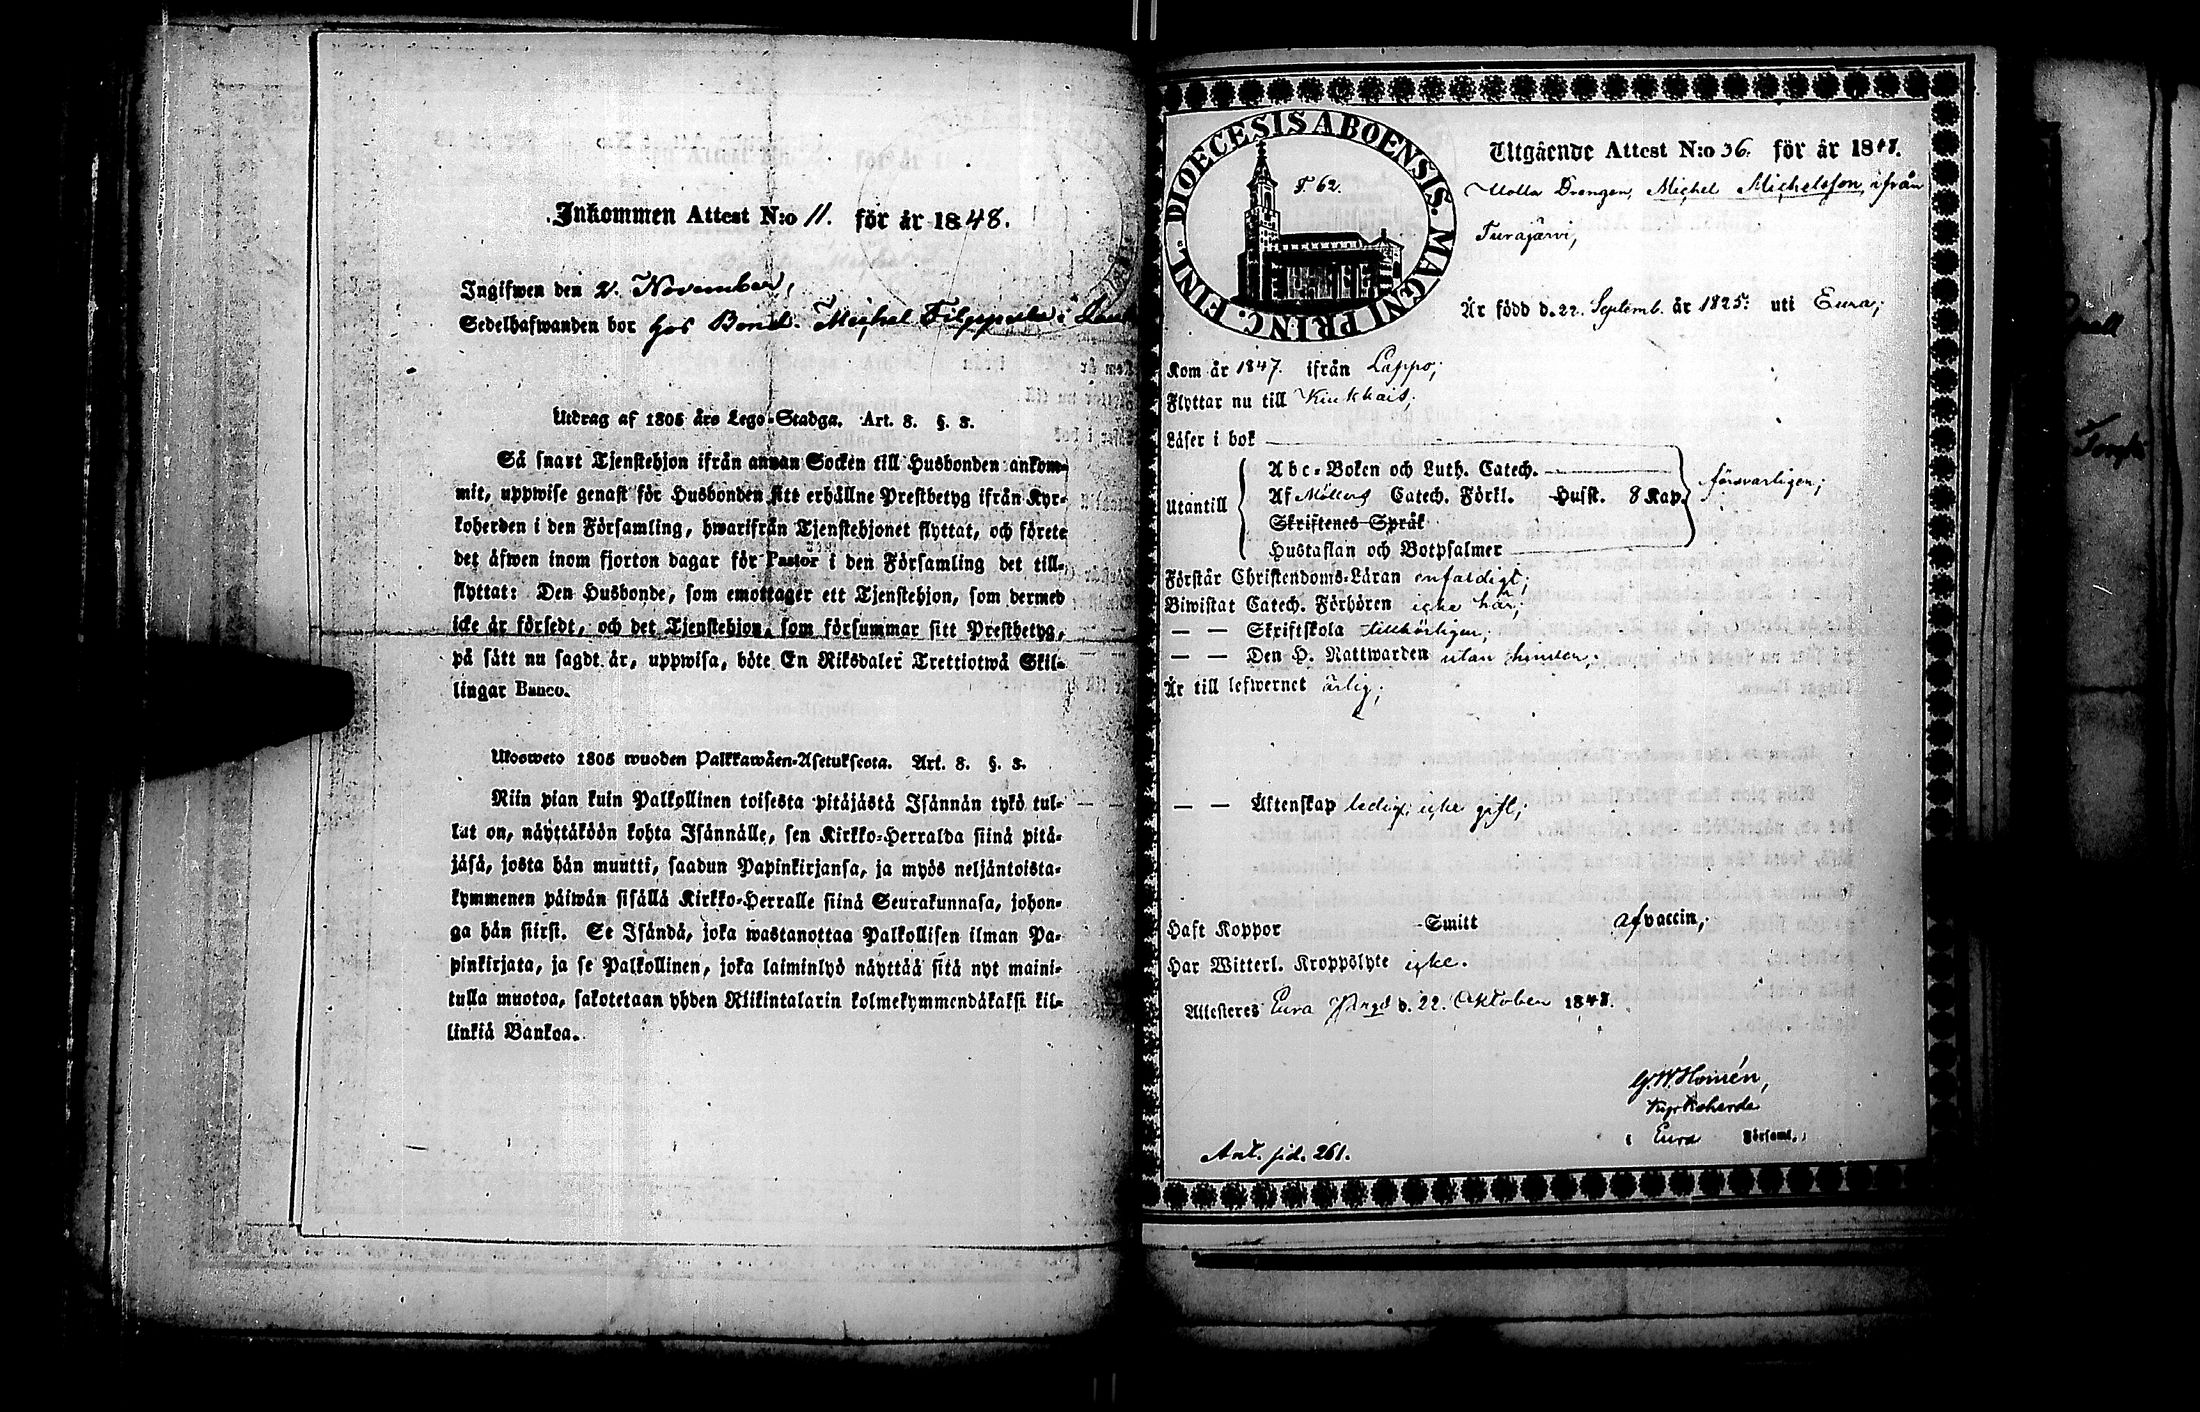 Inkommen Attest N:o 11. för år 1848.
Ingifwen den 2. November,
Sedelhafwanden bor hos Bond. Michel Filppula i
Utdrag af 1805 års Lego-Stadga. Art. 8. §. 3.
Så snart Tjenstehjon ifrån annan Socken till Husbonden ankom-
mit, uppwise genast för Husbonden sitt erhållne Prestbetyg ifrån Kyr-
koherden i den Församling, hwarifrån Tjenstehjonet flyttat, och förete
det äfwen inom fjorton dagar för Pastor i den Församling det till-
flyttat: Den Husbonde, som emottager ett Tjenstehjon, som dermed
icke är försedt, och det Tjenstehjon, som försummar sitt Prestbetyg,
på sätt nu sagdt är, uppwisa, böte En Riksdaler Trettiotwå Skil-
lingar Banco.
Ulosweto 1805 wuoden Palkkawäen-Asetuksesta. Art. 8. §. 3.
Niin pian kuin Palkollinen toisesta pitäjästä Isännän tykö tul-
lut on, näyttäköön kohta Isännälle, sen Kirkko-Herralda siinä pitä-
jäsä, josta hän muutti, saadun Papinkirjansa, ja myös neljäntoista-
kymmenen päiwän sisällä Kirkko-Herralle siinä Seurakunnasa, johon-
ga hän siirsi. Se Isändä, joka wastanottaa Palkollisen ilman Pa-
pinkirjata, ja se Palkollinen, joka laiminlyö näyttää sitä nyt maini-
tulla muotoa, sakotetaan yhden Riikintalarin kolmekymmendäkaksi kil-
linkiä Bankoa.
DIOECESIS ABOENSIS. MAGNI PRINC. FINL.
F 62.
Utgående Attest N:o 36. för år 1848.
Drengen, Michel Michelsson, ifrån
Turajärvi,
Är född d. 22. Septemb. år 1825. uti Eura;
Kom år 1847. ifrån Lappo;
Flyttar nu till Kiukkais;
Läser i bok
Utantill
Abc-Boken och Luth. Catech.
Af Möllers Catech. Förkl. Hussl. 8 Kap.
Skriftenes Språk
Hustaflan och Botpsalmer
försvarligen;
Förstår Christendoms-Läran enfaldigt;
Biwistat Catech. Förhören icke här;
— — Skriftskola tillbörligen;
— — Den H. Nattwarden utan hinder;
Är till lefwernet ärlig;
— — Äktenskap ledig; icke gift;
Haft Koppor Smitt af vaccin;
Har Witterl. Kroppslyte icke.
Attesteres Eura Pstgd d. 22. Oktober 1848.
G. W. Homén,
Kyrkoherde
i Eura Församl.
Ant. sid. 261.